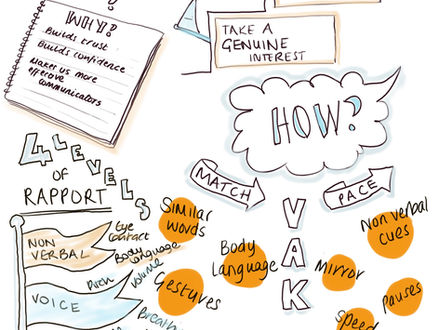 WHY?
Builds trust
Builds confidence
Makes us more
effective
communicators
TAKE A
GENUINE
INTEREST
HOW?
MATCH
PACE
4 LEVELS
OF
RAPPORT
NON
VERBAL
Eye
Contact
Body
Language
VOICE
Pitch
Volume
Similar
Words
Gestures
Body
Language
VAK
Mirror
Non verbal
cues
Pauses